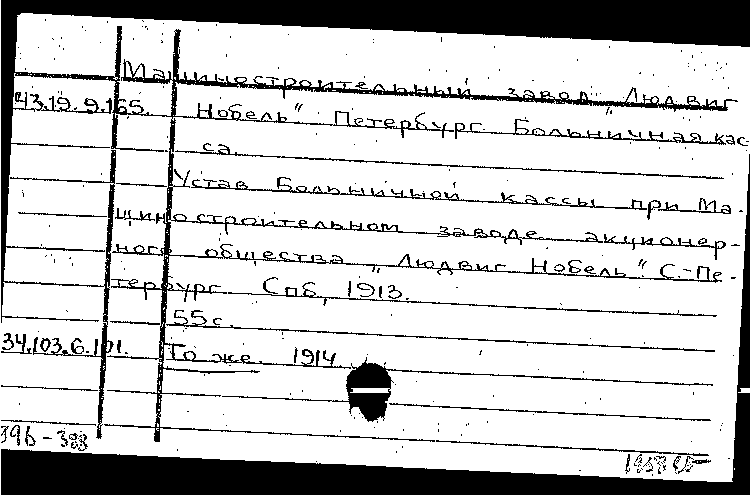 Машиностроительный завод „Людвиг
43.19.9.165. Нобель" Петербург Больничная кас-
са.
Устав Больничной кассы при Ма-
шиностроительном заводе акционер-
ного общества „Людвиг Нобель" С.-Пе-
тербург. Спб, 1913.
55с.
34.103.6.101. То же. 1914
396-388